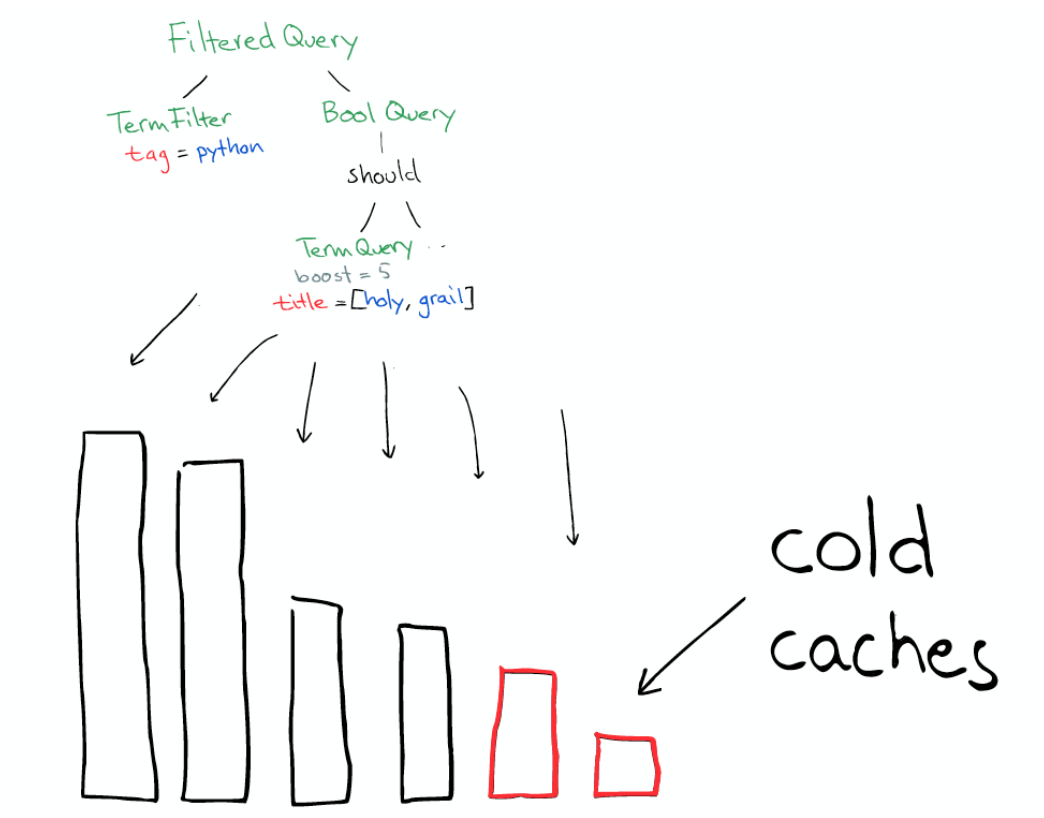 Filtered Query
TermFilter
tag = python
Bool Query
should
TermQuery ...
boost = 5
title = [holy, grail]
cold
caches